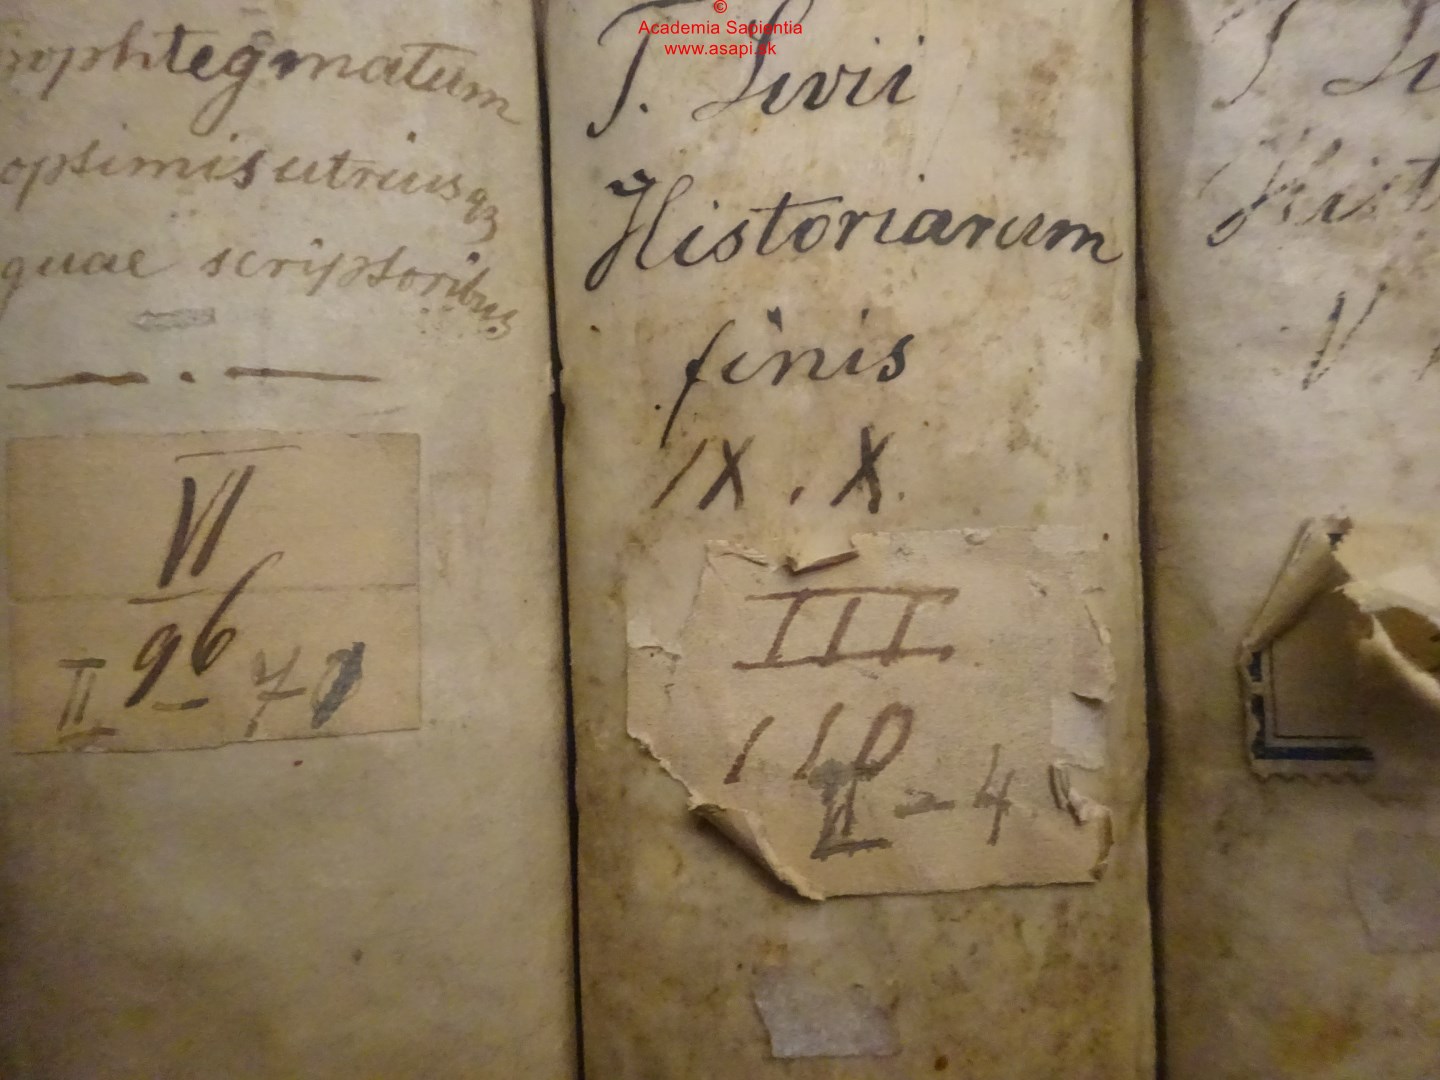 ©
Academia Sapientia
www.asapi.sk
rophtegmatum
optimis utriusq3
quae scriptoribus
VI
96
II - 70
T. Livii
Historiarum
finis
IX. X.
III
110
II - 4
T Li
Hist
V